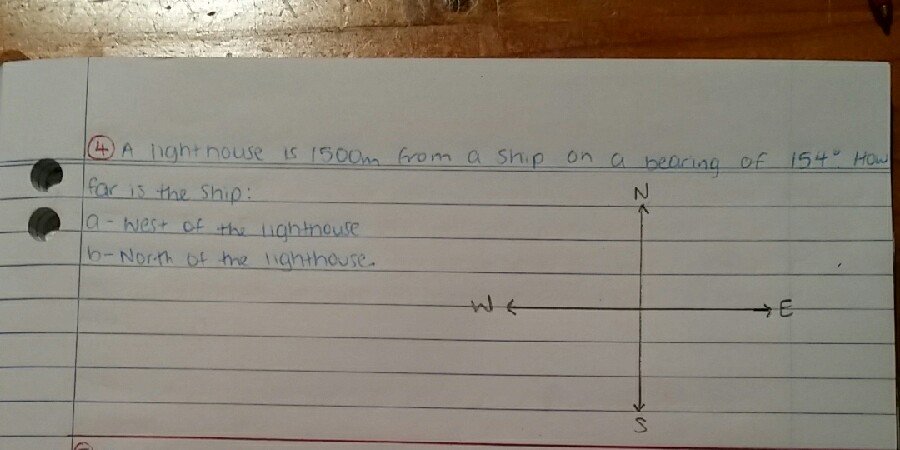 ④ A lighthouse is 1500m from a ship on a bearing of 154° How
far is the ship:
a - West of the lighthouse
b - North of the lighthouse.
N
W E
S